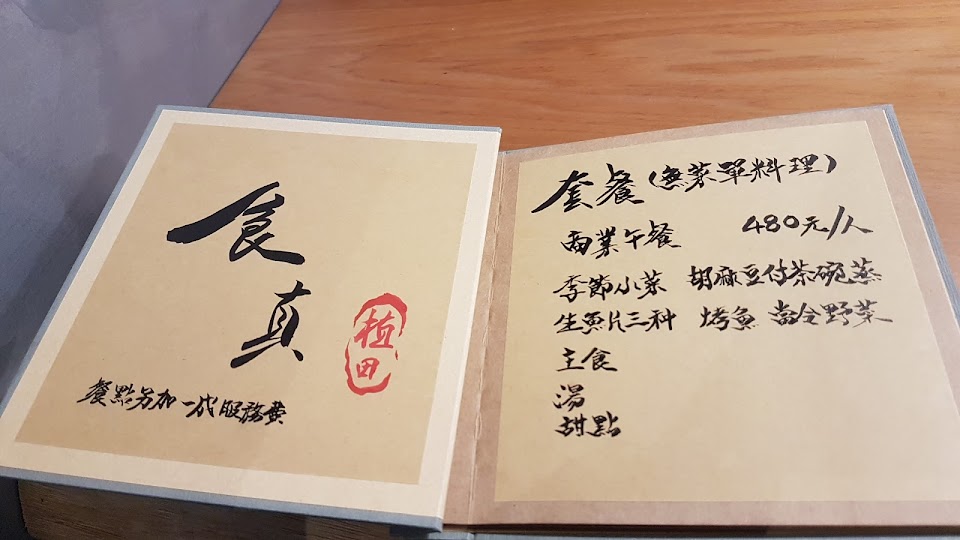 食真
植田
餐點另加一成服務費
套餐(無菜單料理)
商業午餐 480元/人
季節小菜 胡麻豆付茶碗蒸
生魚片三种 烤魚 當令野菜
主食
湯
甜點